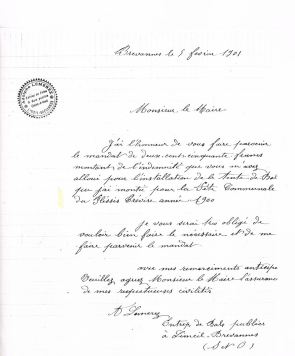 Brevannes le 5 février 1901
Monsieur le Maire
J'ai l'honneur de vous faire parvenir
le mandat de deux cent cinquante francs
montant de l'indemnité que vous m'avez
alloué pour l'installation de la Tente de Bal
que j'ai monté pour la Fête Communale
du Plessis Trévise année 1900
je vous serai très obligé de
vouloir bien faire le nécessaire et de me
faire parvenir le mandat
avec mes remerciements anticipés
Veuillez agréez Monsieur le Maire l'assurance
de mes respectueuses civilités
A Lemercy
Entrep de Bals publics
à Limeil-Brevannes
(S & O)